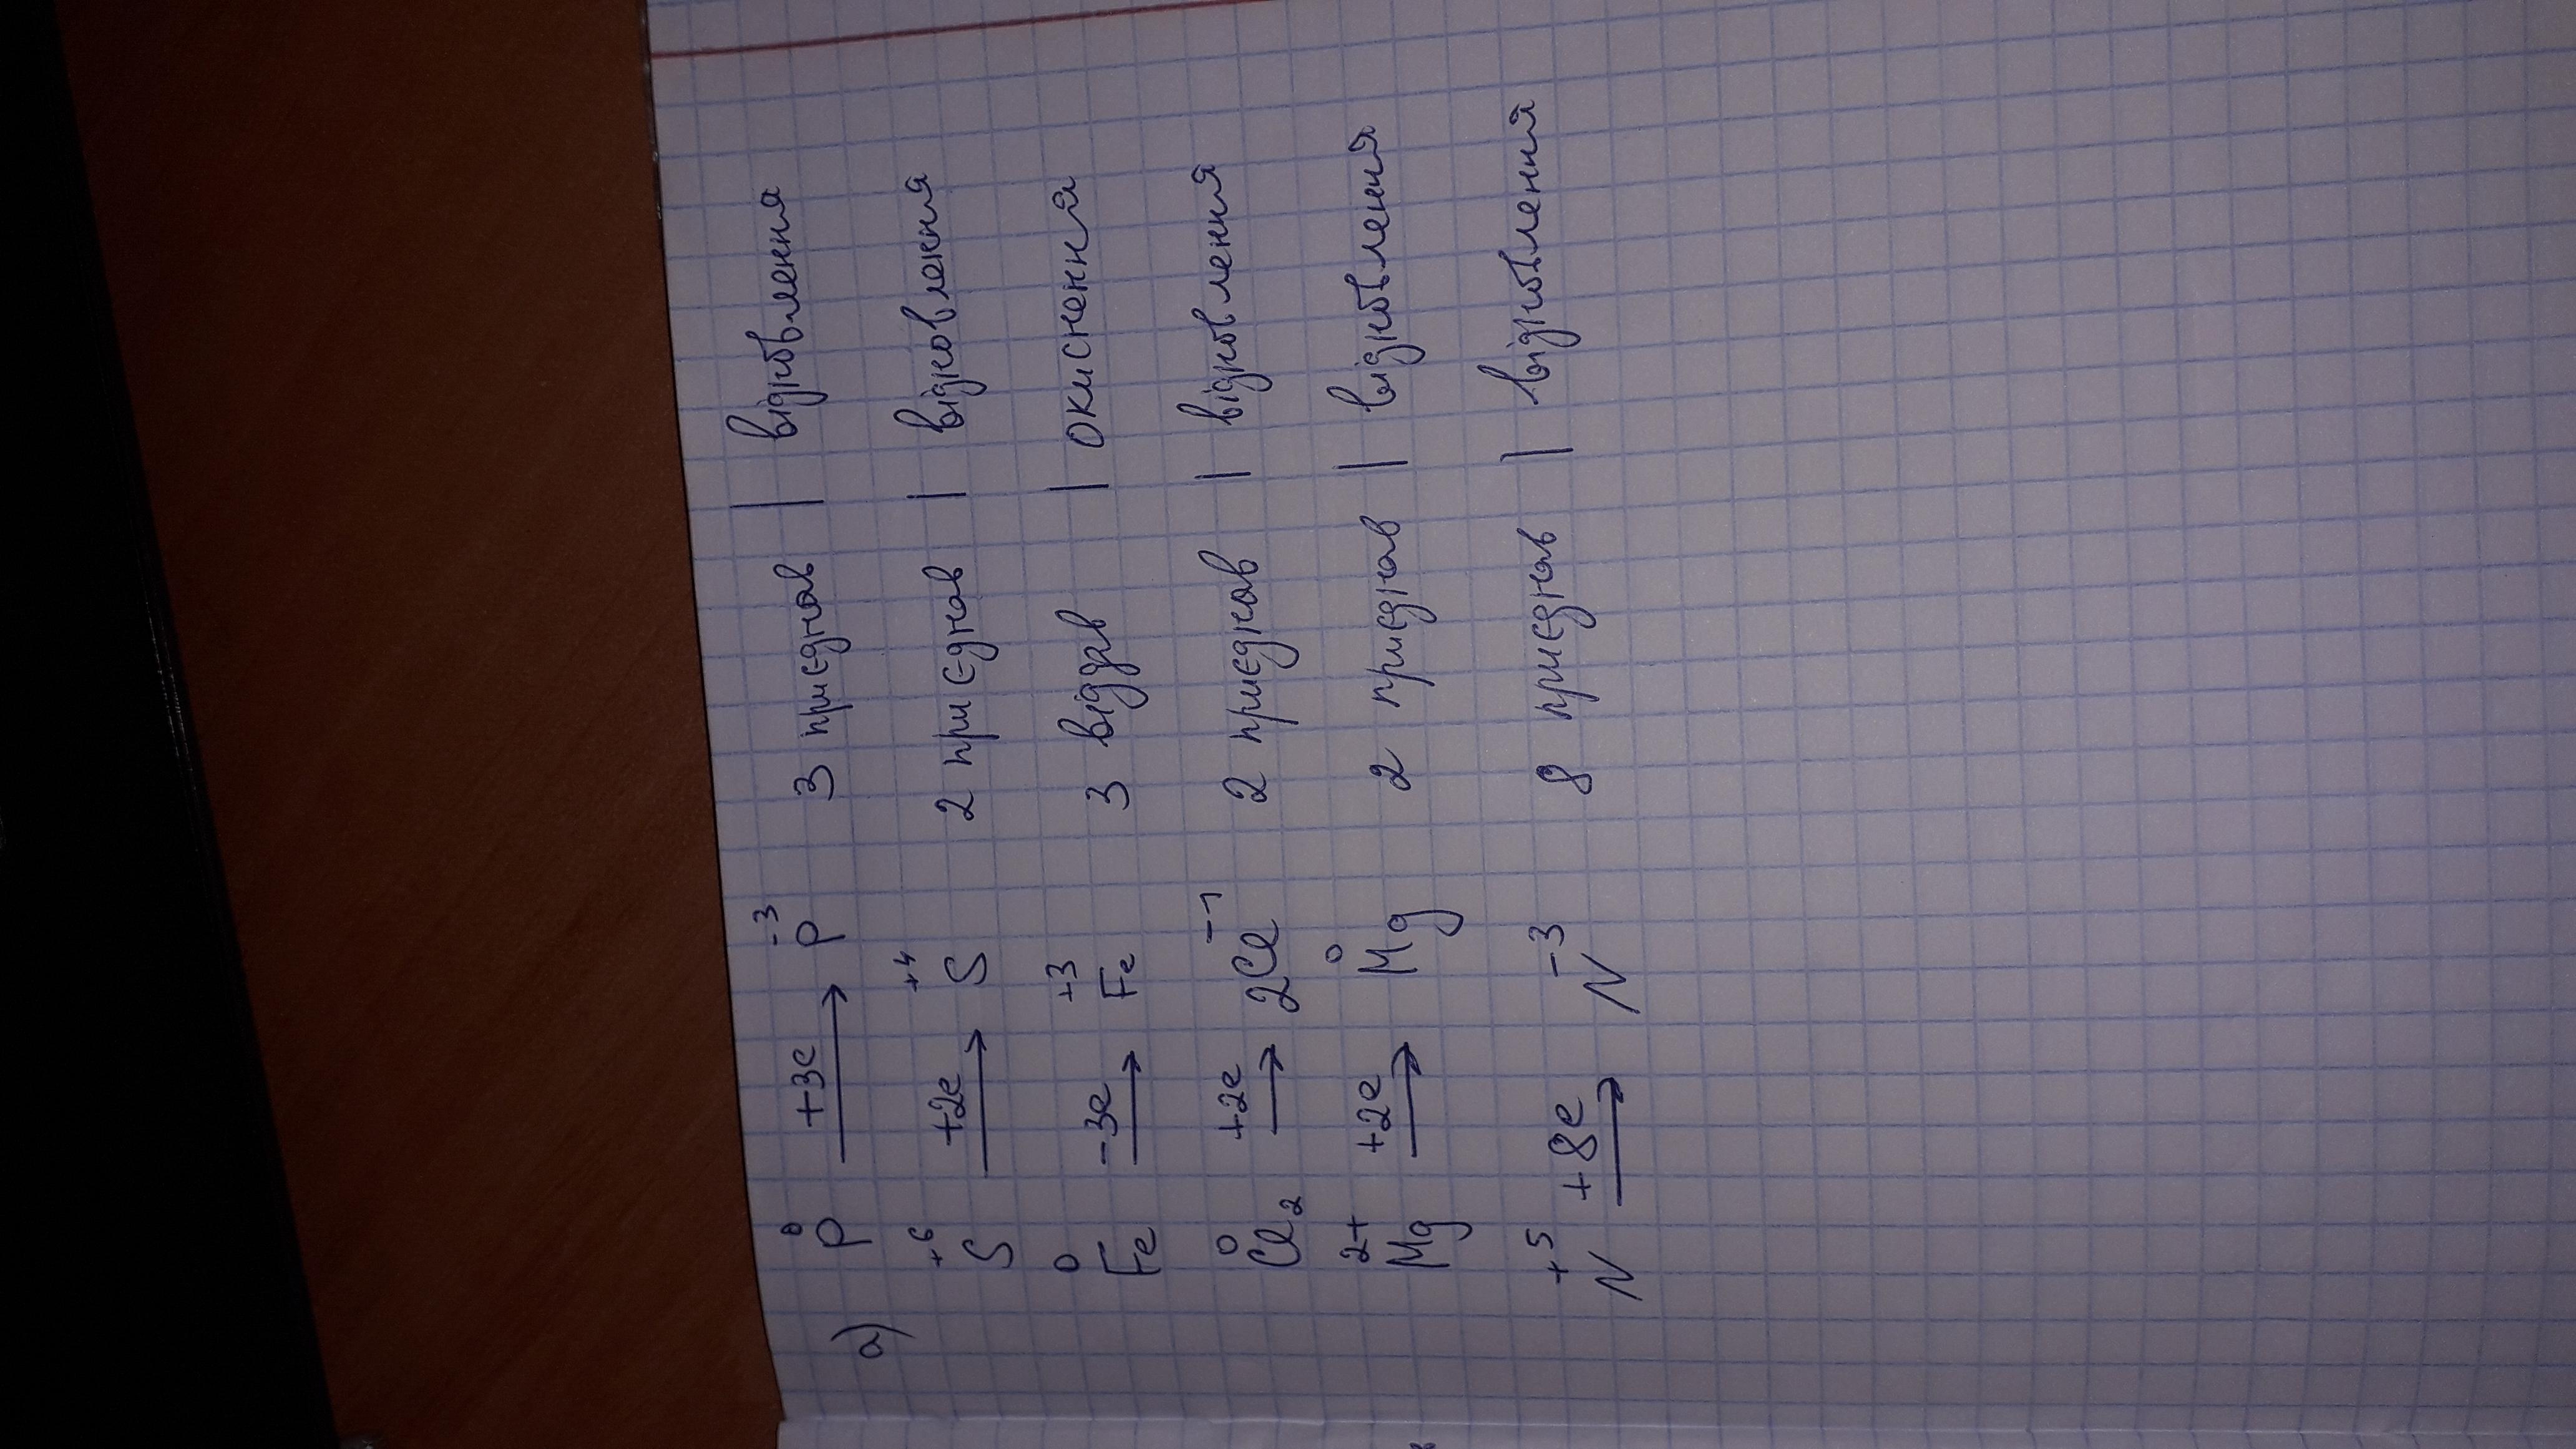 а) P⁰ +3e → P⁻³ 3 приєднав | відновлення
S⁺⁶ +2e → S⁺⁴ 2 приєднав | відновлення
Fe⁰ -3e → Fe⁺³ 3 віддав | окиснення
Cl₂⁰ +2e → 2Cl⁻¹ 2 приєднав | відновлення
Mg²⁺ +2e → Mg⁰ 2 приєднав | відновлення
N⁺⁵ +8e → N⁻³ 8 приєднав | відновлення